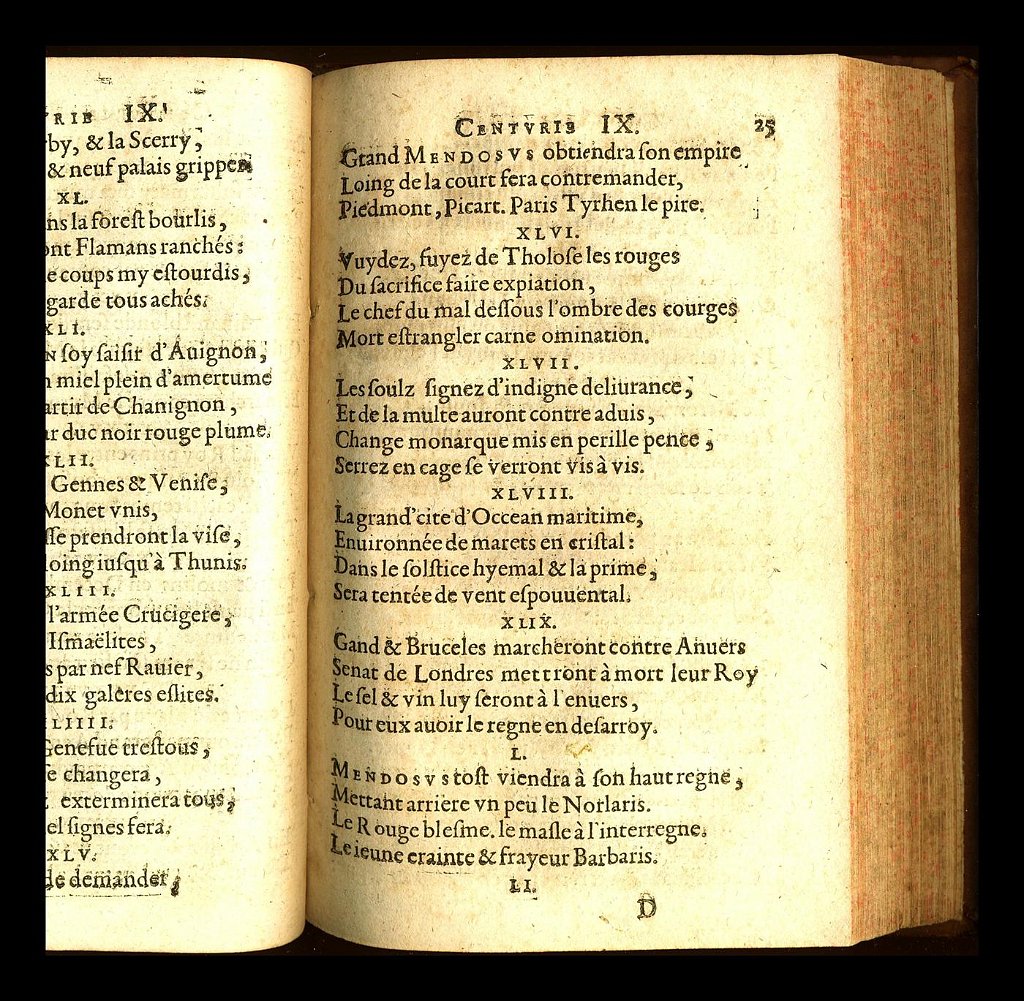 IX.
by, & la Scerry,
& neuf palais grippen
XL.
ns la forest bourlis,
ont Flamans ranchés:
e coups my estourdis,
garde tous achés.
XLI.
N soy saisir d'Auignon,
miel plein d'amertume
artir de Chanignon,
ar duc noir rouge plume.
XLII.
Gennes & Venise,
Monet vnis,
sse prendront la vise,
loing iusqu'à Thunis.
XLIII.
l'armée Crucigere,
Ismaëlites,
s par nef Rauier,
dix galeres eslites.
LIIII.
Genefue trestous,
se changera,
exterminera tous,
el signes fera.
XLV.
de demander,
CENTVRIE IX. 25
Grand MENDOSVS obtiendra son empire
Loing de la court fera contremander,
Piedmont, Picart. Paris Tyrhen le pire.
XLVI.
Vuydez, fuyez de Tholose les rouges
Du sacrifice faire expiation,
Le chef du mal dessous l'ombre des courges
Mort estrangler carne omination.
XLVII.
Les soulz signez d'indigne deliurance,
Et de la multe auront contre aduis,
Change monarque mis en perille pence,
Serrez en cage se verront vis à vis.
XLVIII.
La grand'cite d'Occean maritime,
Enuironnée de marets en cristal:
Dans le solstice hyemal & la prime,
Sera tentée de vent espouuental.
XLIX.
Gand & Bruceles marcheront contre Anuers
Senat de Londres mettront à mort leur Roy
Le sel & vin luy seront à l'enuers,
Pour eux auoir le regne en desarroy.
L.
MENDOSVS tost viendra à son haut regne,
Mettant arriere vn peu le Norlaris.
Le Rouge blesme. le masle à l'interregne.
Le ieune crainte & frayeur Barbaris.
LI.
D